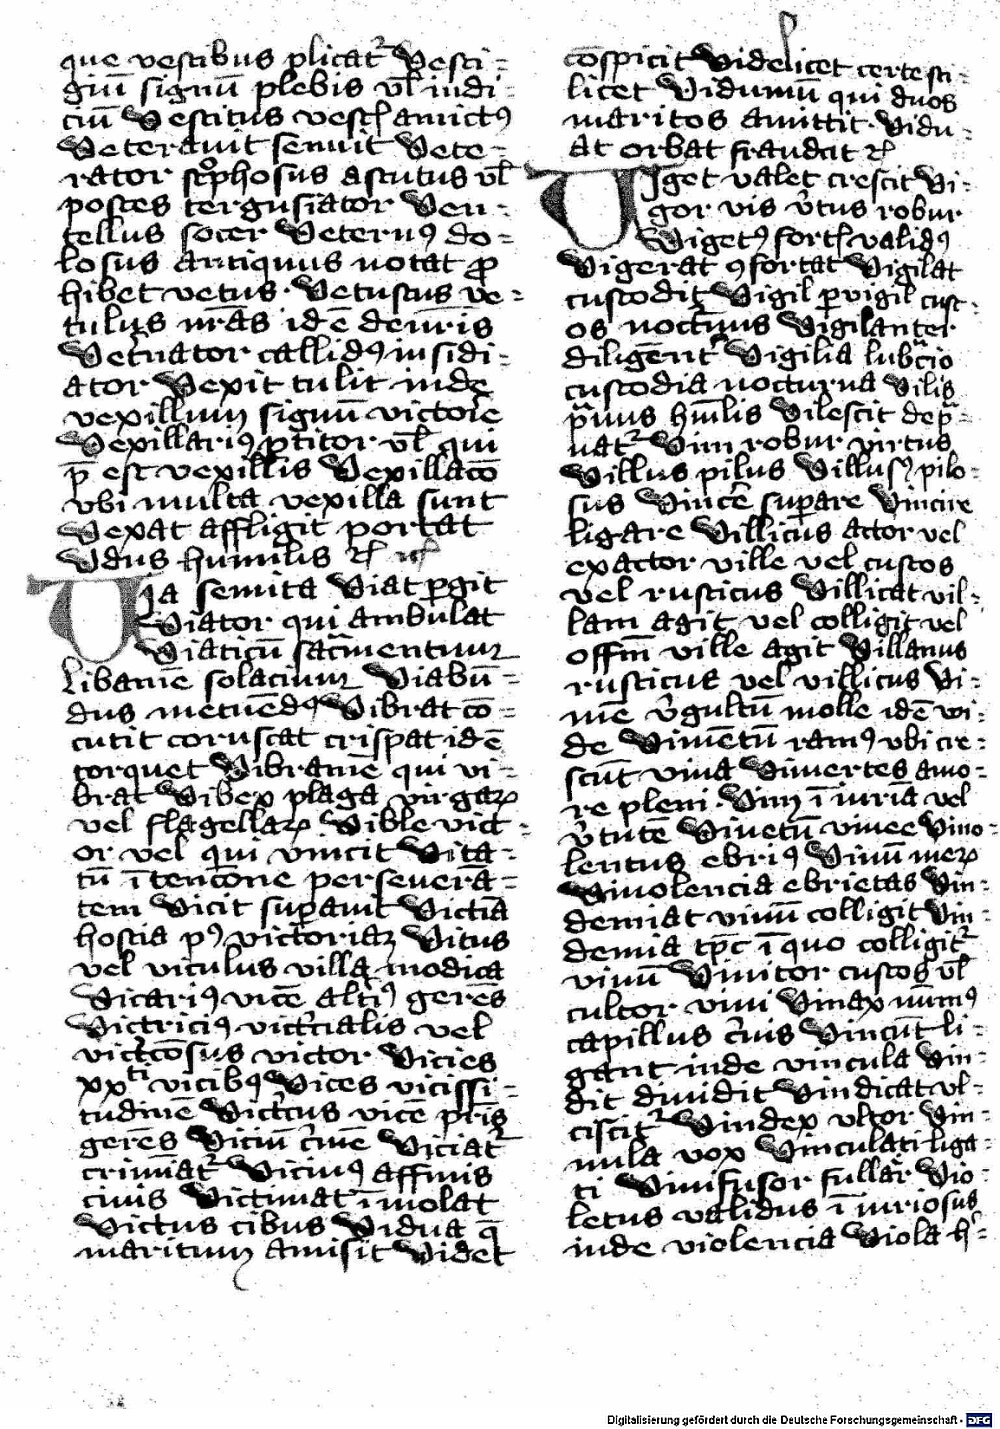 que vestibus plicatʳ Vesti-
giū signū plebis vl̄ indi-
ciū Vestitus vestꝭ amictꝰ
Veteravit senuit Vete-
rator stꝓhosus astutus vl̄
postes tergusiator Ven-
tellus socer Veternꝰ do-
losus antiquus notat ꝓ
hibet vetus · Vetustus ve-
tulus nr̄as idē dem̄ris
Vet̄nator callidꝰ insidi-
ator Vexit tulit inde
vexillum signū victorie
Vexillariꝰ ꝑtitor vl̄ qui
p̄ est vexillis Vexillacō
vbi multa vexilla sunt
Vexat affligit portat
Vdus humilis ⁊c
Via semita Viat ꝑgit
Viator qui ambulat
Viaticū sac̄mentum
libamē solacium Viabū-
dus metuēdꝰ Vibrat cō-
cutit coruscat crispat idē
torquet Vibramē qui vi-
brat Vibex plaga virgaꝝ
vel flagellaꝝ Vible vict-
or vel qui vincit Vita-
tū ītencōne perseverā-
tem Vicit suꝑavit Victīa
hostia pꝰ victoriaꝫ Vitus
vel viculus villa modica
Vicariꝰ vicē altiꝰ gerēs
Victriciꝰ vict̄cialis vel
vict̄cōsus victor Vicies
xxᵗⁱ vicibꝰ Vices vicissi-
tudinē Vict̄cus vicē pr̄is
gerēs Viciū c̄mē Viciatʳ
crimīatʳ Viciniꝰ affinis
civis Victimat īmolat
Victus cibus Vidua q̄
maritum amisit Videt
cōspicit Videlicet certe sci-
licet Vidumū qui duos
maritos amittit · Vidu-
at orbat fraudat ⁊c
Viget valet crescit Vi-
gor vis v̄tus robur
Vigetꝰ fortꝭ validꝰ
Vigerat ꝯfortat Vigilat
custodit Vigil ꝑvigil cust-
os noct̄nus Vigilanter
diligentʳ Vigilia lubc̄io
custodia nocturna Vilis
pͣvus hūilis Vilescit depͣ-
uatʳ Vim robur virtus
Villus pilus Villusꝰ pilo-
sus Vincēe suꝑare Vincire
ligare Villicus actor vel
exactor ville vel custos
vel rusticus Villicat vil-
lam agit vel colligit vel
offm̄ ville agit Villanus
rusticus vel villicus Vi-
mē v̄gultū molle idē vi-
de Vimētū ramꝰ vbi cre-
scūt vina Vinuertes amo-
re pleni · Vim īiuriā vel
v̄tutē Vinetū vinee Vino-
lentus ebriꝰ Vinū meꝝ
Vinolencia ebrietas Vin-
demiat vinū colligit Vin-
demia tp̄c ī quo colligitʳ
vinū Vinitor custos vl̄
cultor vini Vinax nūmꝰ
capillus c̄uis Vincūt li-
gant inde vincula Vin-
dit dividit Vindicat vl-
ciscitʳ Vindex vltor Vin-
nula vox Vinculati liga-
ti Vinifusor fullar̄ Vio-
letus validus īiuriosus
inde violencia Viola h̄-